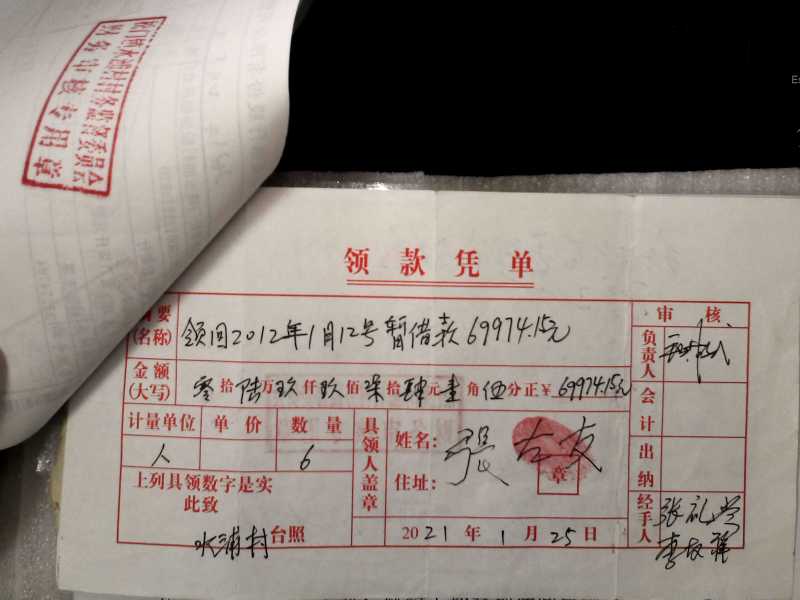 村务监督委员会
财务审核专用章
领款凭单
摘要
(名称)
领回2012年1月12号暂借款69974.15元
审核
负责人
金额
(大写)
零拾陆万玖仟玖佰柒拾肆元壹角伍分正¥69974.15元
会计
计量单位 单价 数量
人 6
具领人盖章
姓名:
张右友
章
住址:
出纳
上列具领数字是实
此致
水浦村台照
2021年1月25日
经手人
张礼
李